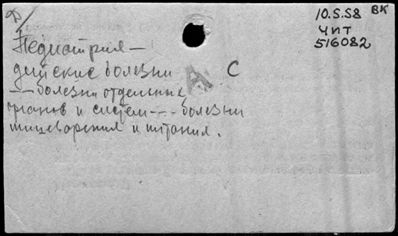 10.5.58 ВК
ЧИТ
516082
Педиатрия —
детские болезни
— — болезни отдельных
органов и систем — — — болезни
пищеварения и питания.
А С